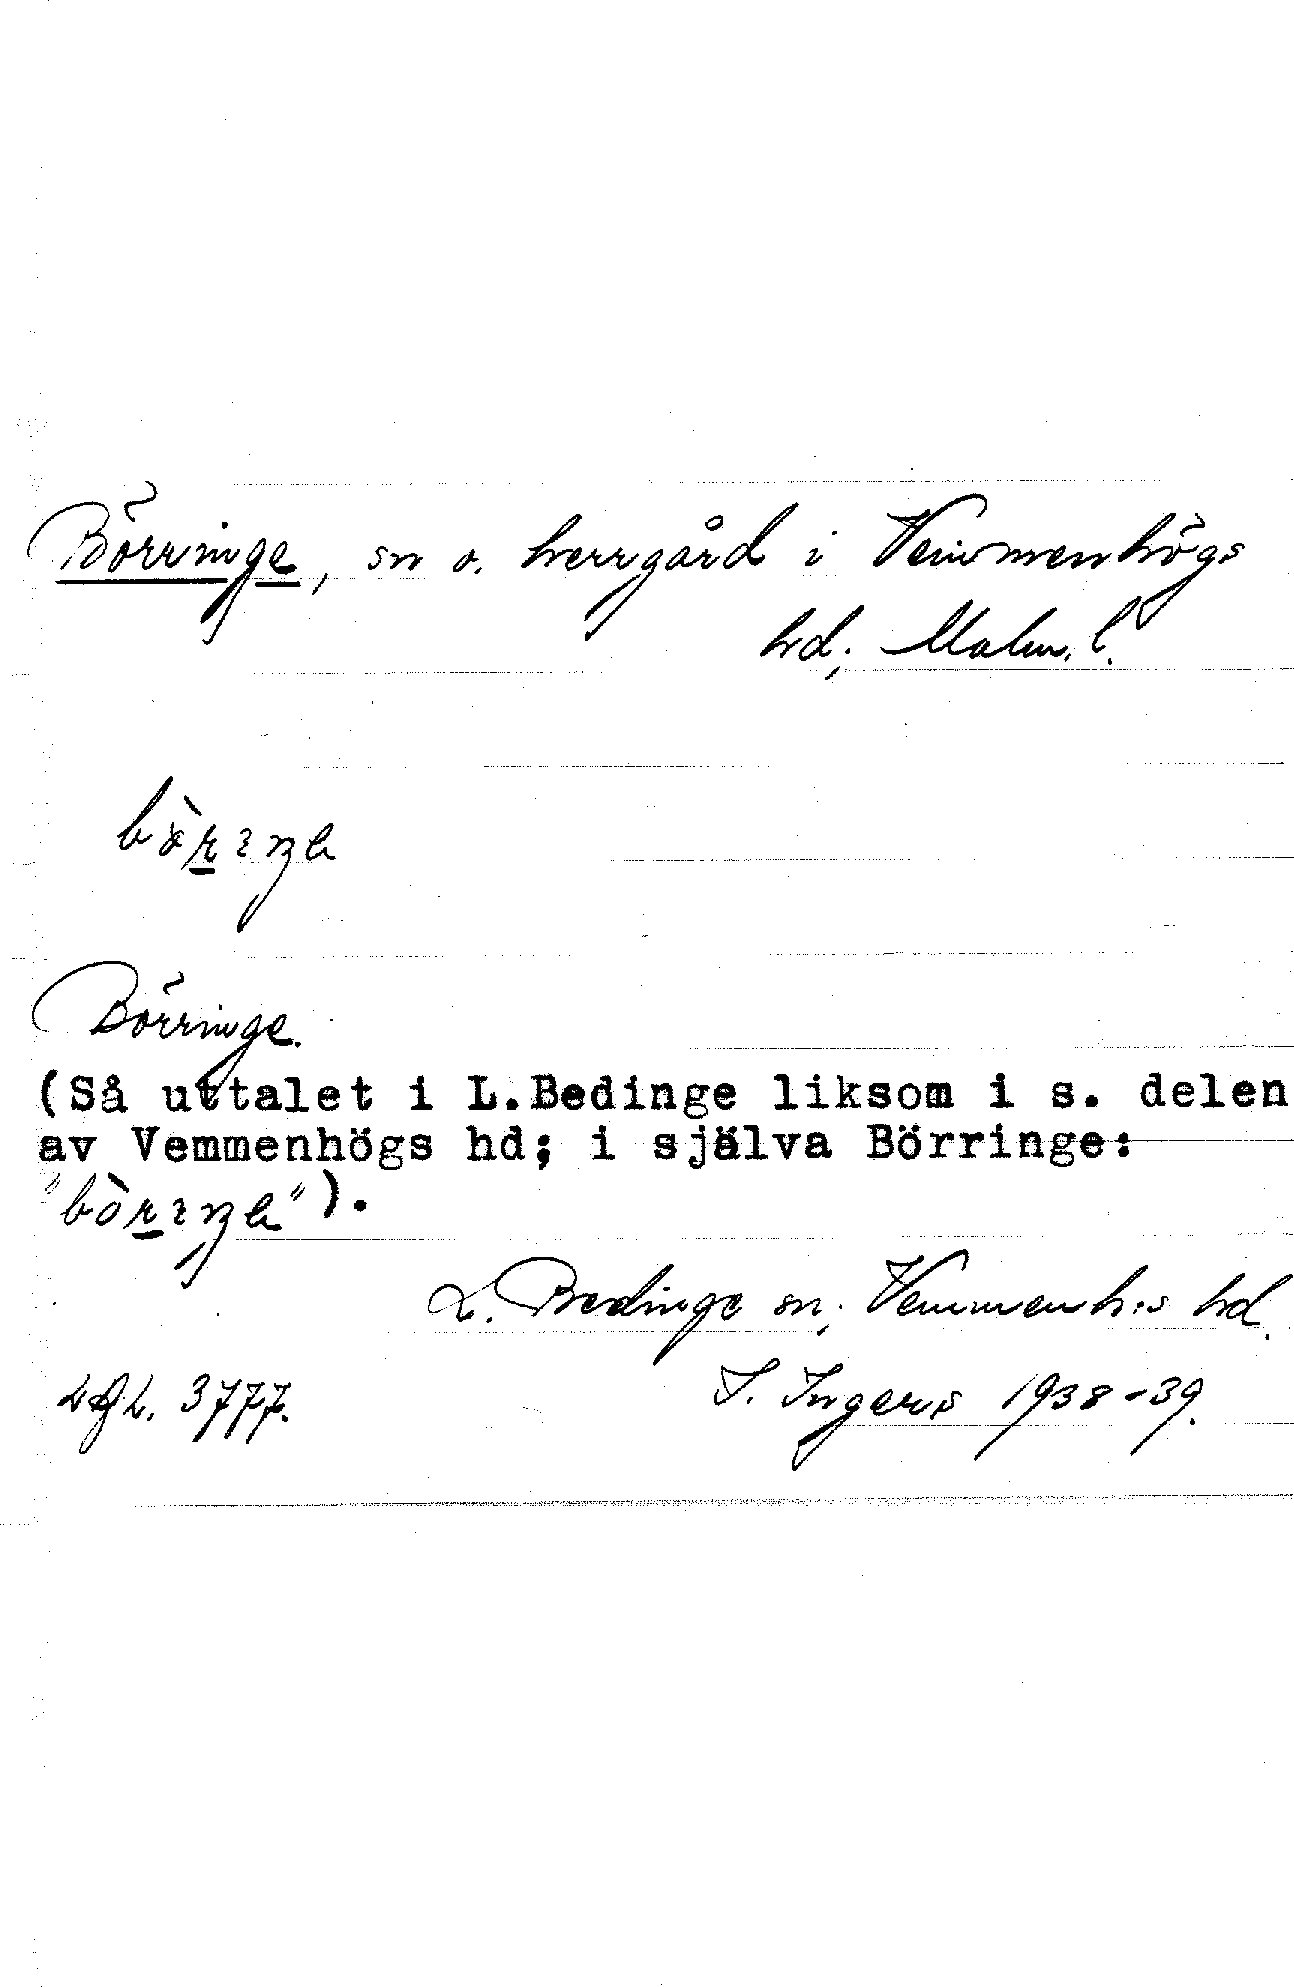 Börringe, sn o. herrgård i Vemmenhögs
hd, Malm. l.
Börringe.
(Så uttalet i L.Bedinge liksom i s. delen
av Vemmenhögs hd; i själva Börringe:
").
L. Bedinge sn, Vemmenh:s hd.
LGL. 3777.
I. Ingers 1938-39.